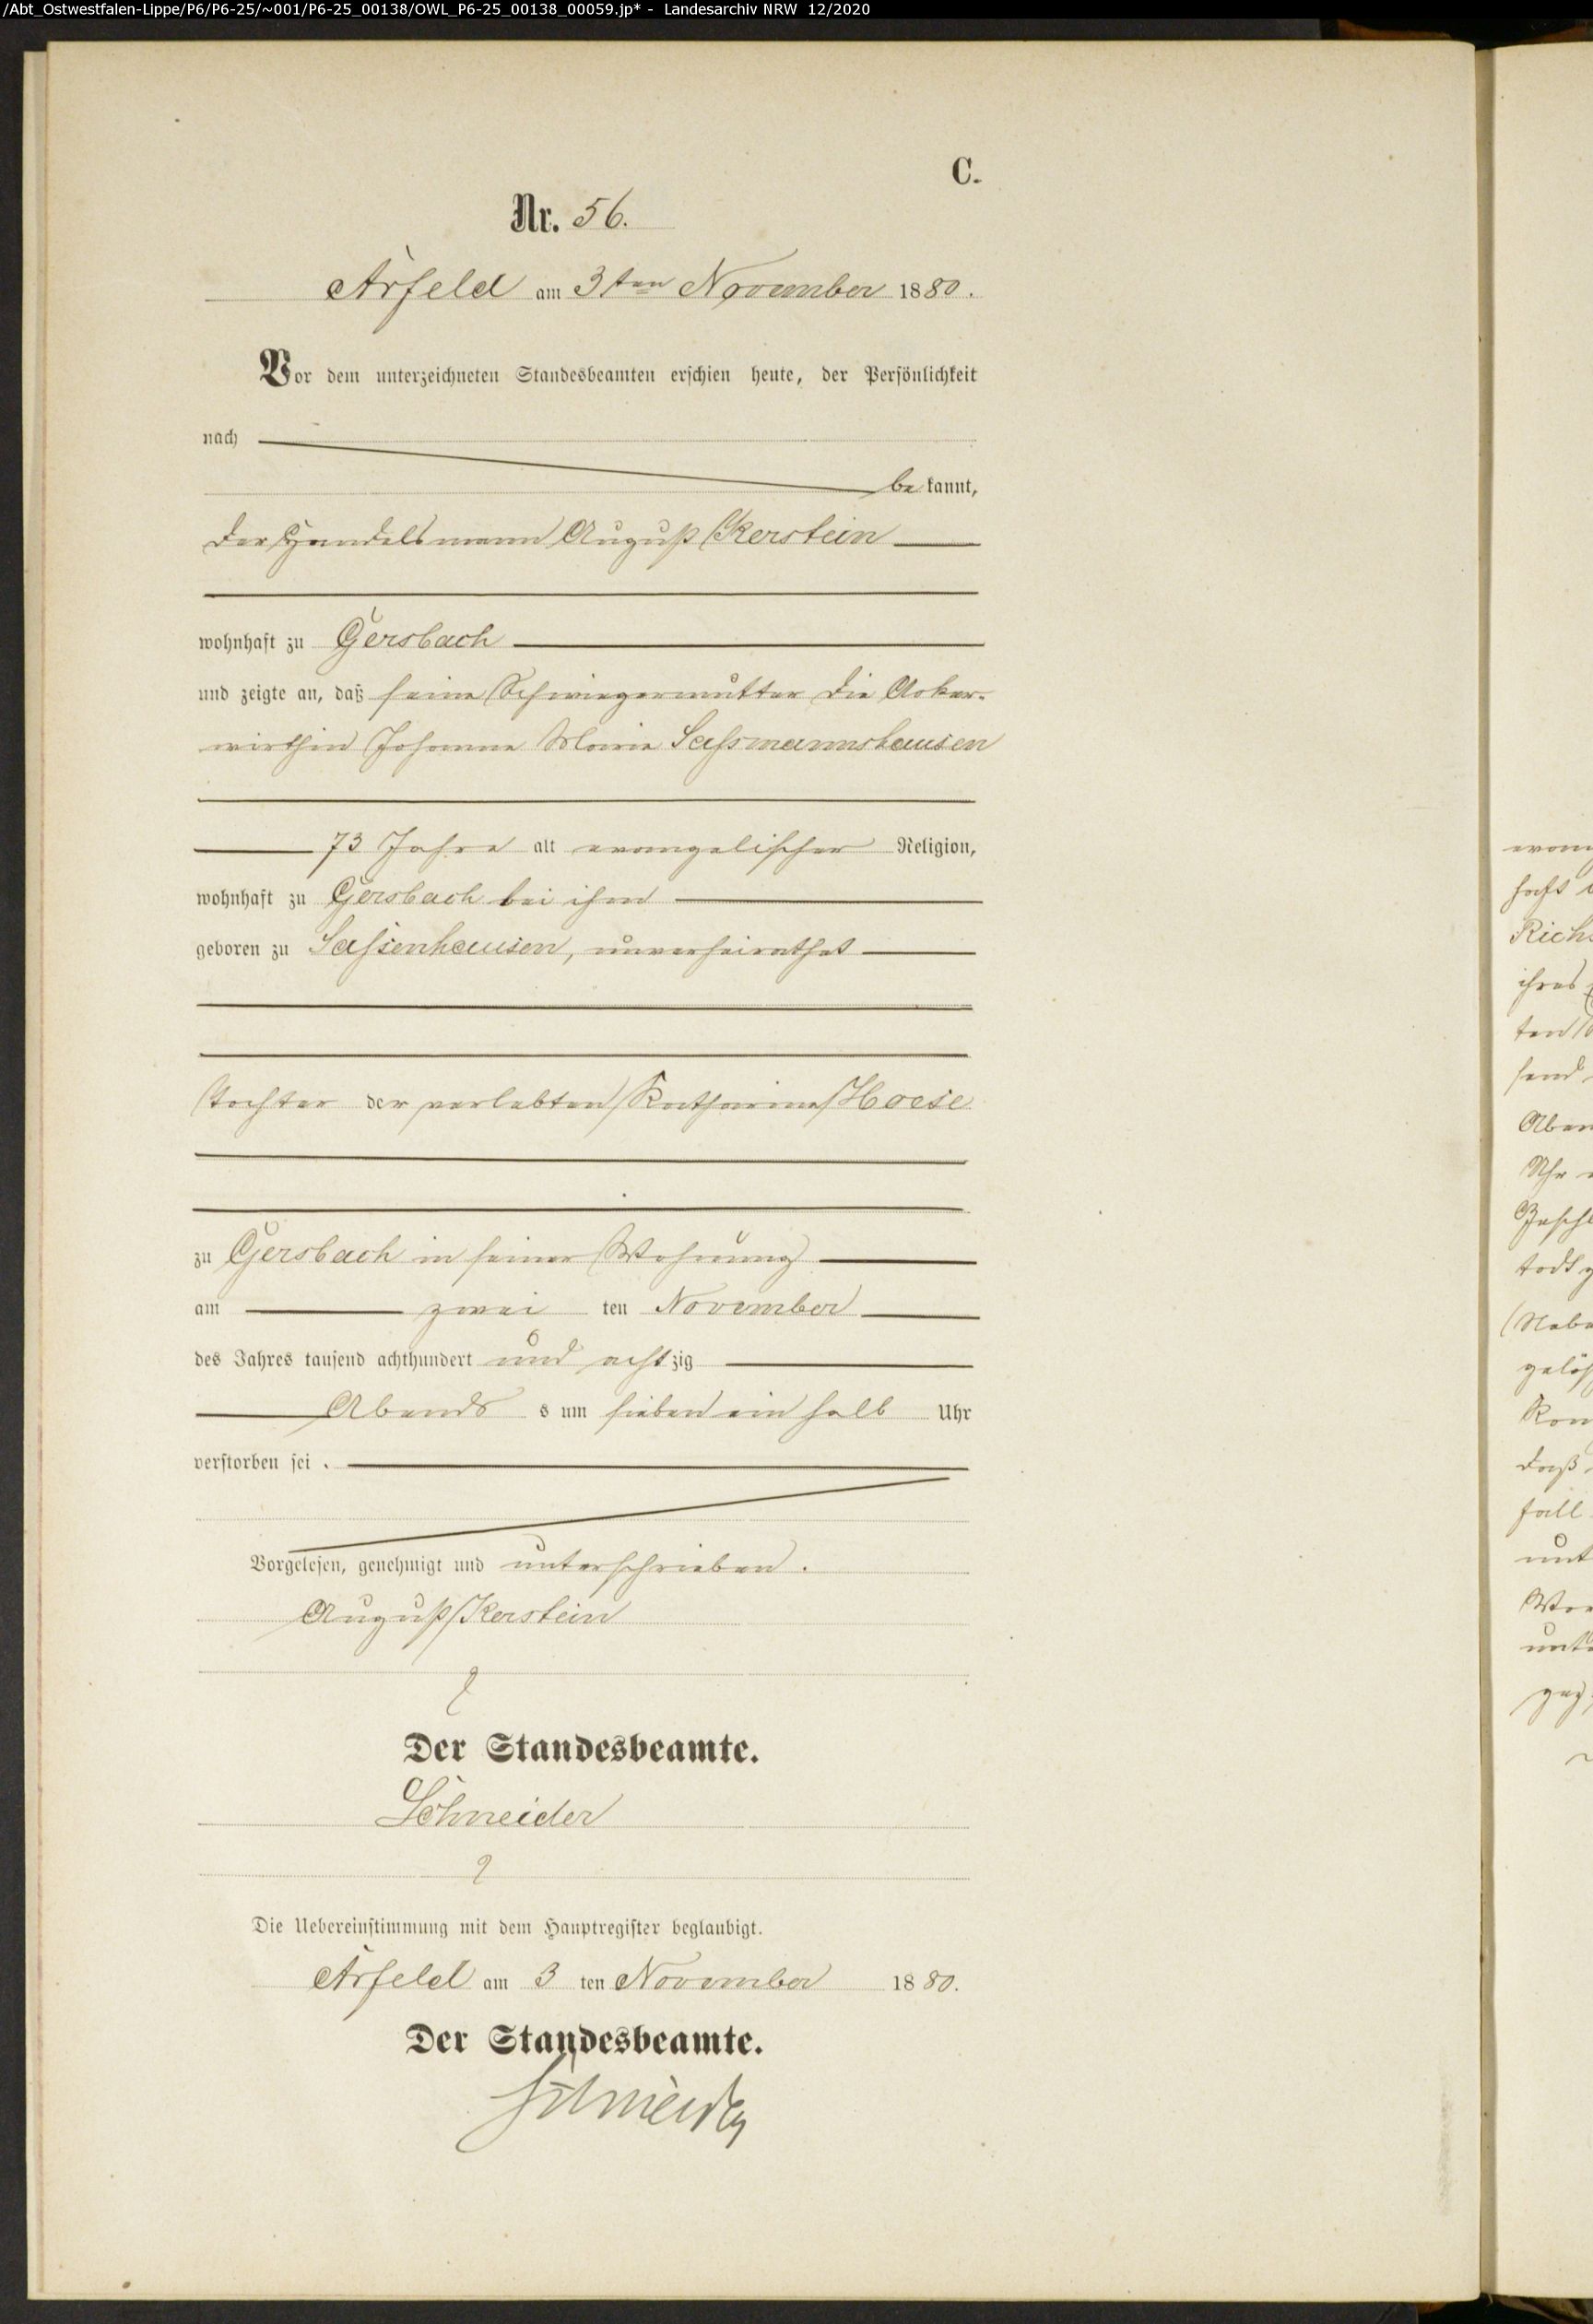 /Abt_Ostwestfalen-Lippe/P6/P6-25/~001/P6-25_00138/OWL_P6-25_00138_00059.jp* - Landesarchiv NRW 12/2020
C.
Nr. 56.
Arfeld am 3ten November 1880.
Vor dem unterzeichneten Standesbeamten erschien heute, der Persönlichkeit
nach
bekannt,
der Handelsmann August Kerstein
wohnhaft zu Gersbach
und zeigte an, daß seine Schwiegermutter die Acker-
wirthin Johanne Marie Sassmannshausen
73 Jahre alt evangelischer Religion,
wohnhaft zu Gersbach bei ihm
geboren zu Sassenhausen, unverheirathet
Tochter der verlebten Katharine Hoese
zu Gersbach in seiner Wohnung
am zwei ten November
des Jahres tausend achthundert und achtzig
Abends s um sieben ein halb Uhr
verstorben sei .
Vorgelesen, genehmigt und unterschrieben.
August Kerstein
Der Standesbeamte.
Schneider
Die Uebereinstimmung mit dem Hauptregister beglaubigt.
Arfeld am 3 ten November 1880.
Der Standesbeamte.
Schneider